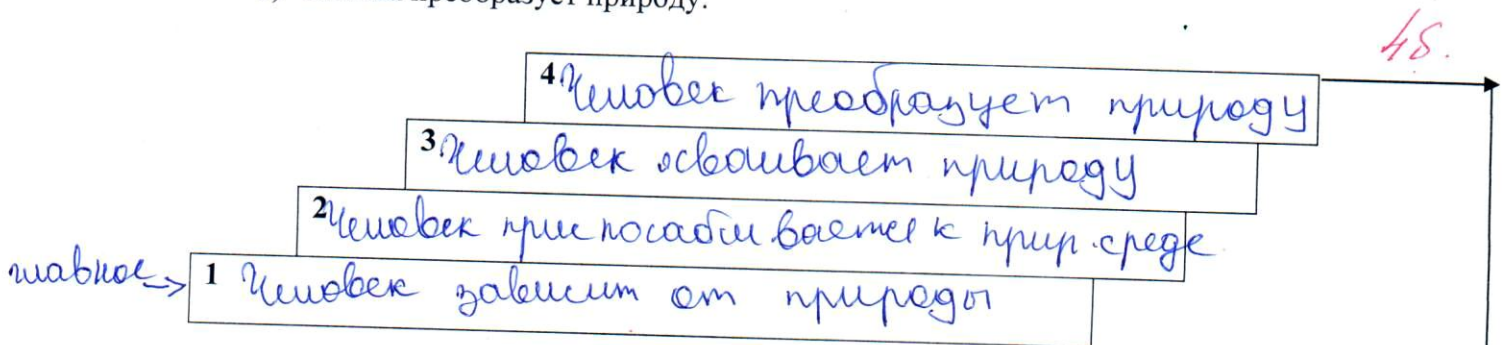 преобразует природу.
4б.
4 Человек преобразует природу
3. Человек осваивает природу
2 Человек приспосабливается к прир. среде
главное -> 1 Человек зависит от природы